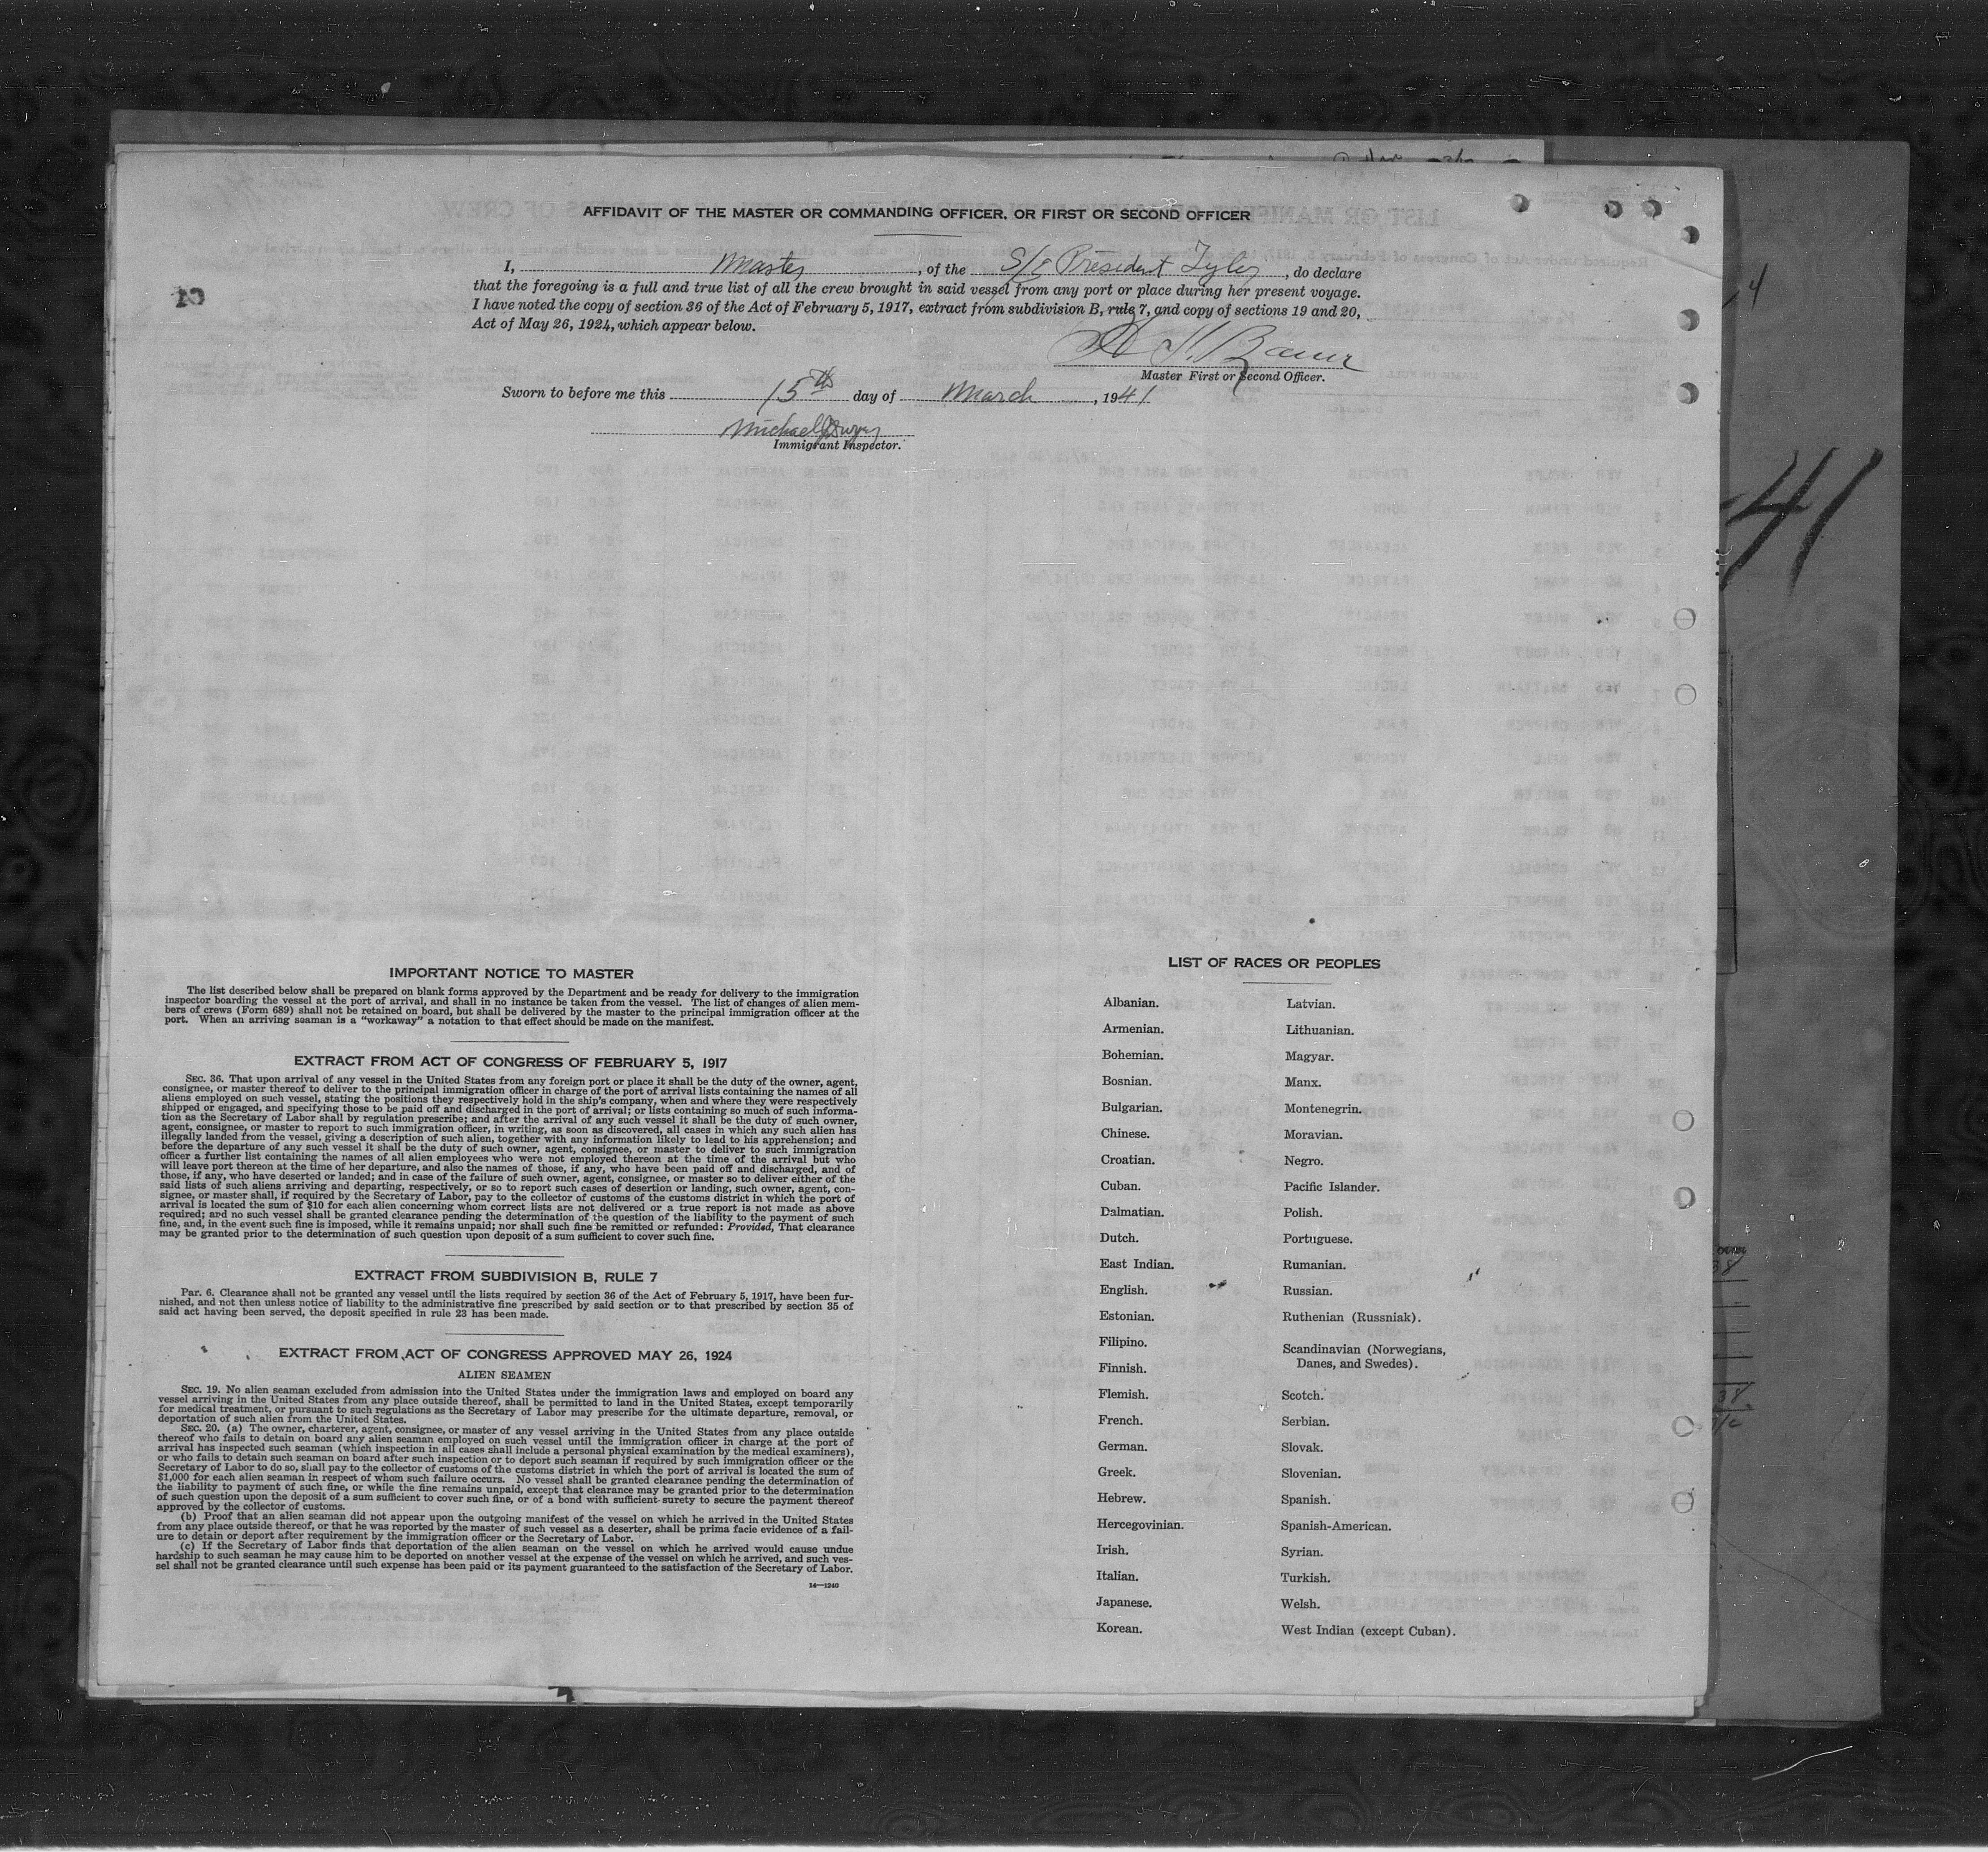 AFFIDAVIT OF THE MASTER OR COMMANDING OFFICER, OR FIRST OR SECOND OFFICER
I, Master, of the S/S President Tyler, do declare
that the foregoing is a full and true list of all the crew brought in said vessel from any port or place during her present voyage.
I have noted the copy of section 36 of the Act of February 5, 1917, extract from subdivision B, rule 7, and copy of sections 19 and 20,
Act of May 26, 1924, which appear below.
Master First or Second Officer.
Sworn to before me this 15th day of March, 1941
Michael
Immigrant Inspector.
41
IMPORTANT NOTICE TO MASTER
The list described below shall be prepared on blank forms approved by the Department and be ready for delivery to the immigration
inspector boarding the vessel at the port of arrival, and shall in no instance be taken from the vessel. The list of changes of alien mem-
bers of crews (Form 689) shall not be retained on board, but shall be delivered by the master to the principal immigration officer at the
port. When an arriving seaman is a "workaway" a notation to that effect should be made on the manifest.
EXTRACT FROM ACT OF CONGRESS OF FEBRUARY 5, 1917
SEC. 36. That upon arrival of any vessel in the United States from any foreign port or place it shall be the duty of the owner, agent,
consignee, or master thereof to deliver to the principal immigration officer in charge of the port of arrival lists containing the names of all
aliens employed on such vessel, stating the positions they respectively hold in the ship's company, when and where they were respectively
shipped or engaged, and specifying those to be paid off and discharged in the port of arrival; or lists containing so much of such informa-
tion as the Secretary of Labor shall by regulation prescribe; and after the arrival of any such vessel it shall be the duty of such owner,
agent, consignee, or master to report to such immigration officer, in writing, as soon as discovered, all cases in which any such alien has
illegally landed from the vessel, giving a description of such alien, together with any information likely to lead to his apprehension; and
before the departure of any such vessel it shall be the duty of such owner, agent, consignee, or master to deliver to such immigration
officer a further list containing the names of all alien employees who were not employed thereon at the time of the arrival but who
will leave port thereon at the time of her departure, and also the names of those, if any, who have been paid off and discharged, and of
those, if any, who have deserted or landed; and in case of the failure of such owner, agent, consignee, or master so to deliver either of the
said lists of such aliens arriving and departing, respectively, or so to report such cases of desertion or landing, such owner, agent, con-
signee, or master shall, if required by the Secretary of Labor, pay to the collector of customs of the customs district in which the port of
arrival is located the sum of $10 for each alien concerning whom correct lists are not delivered or a true report is not made as above
required; and no such vessel shall be granted clearance pending the determination of the question of the liability to the payment of such
fine, and, in the event such fine is imposed, while it remains unpaid; nor shall such fine be remitted or refunded: Provided, That clearance
may be granted prior to the determination of such question upon deposit of a sum sufficient to cover such fine.
EXTRACT FROM SUBDIVISION B, RULE 7
Par. 6. Clearance shall not be granted any vessel until the lists required by section 36 of the Act of February 5, 1917, have been fur-
nished, and not then unless notice of liability to the administrative fine prescribed by said section or to that prescribed by section 35 of
said act having been served, the deposit specified in rule 23 has been made.
EXTRACT FROM ACT OF CONGRESS APPROVED MAY 26, 1924
ALIEN SEAMEN
SEC. 19. No alien seaman excluded from admission into the United States under the immigration laws and employed on board any
vessel arriving in the United States from any place outside thereof, shall be permitted to land in the United States, except temporarily
for medical treatment, or pursuant to such regulations as the Secretary of Labor may prescribe for the ultimate departure, removal, or
deportation of such alien from the United States.
SEC. 20. (a) The owner, charterer, agent, consignee, or master of any vessel arriving in the United States from any place outside
thereof who fails to detain on board any alien seaman employed on such vessel until the immigration officer in charge at the port of
arrival has inspected such seaman (which inspection in all cases shall include a personal physical examination by the medical examiners),
or who fails to detain such seaman on board after such inspection or to deport such seaman if required by such immigration officer or the
Secretary of Labor to do so, shall pay to the collector of customs of the customs district in which the port of arrival is located the sum of
$1,000 for each alien seaman in respect of whom such failure occurs. No vessel shall be granted clearance pending the determination of
the liability to payment of such fine, or while the fine remains unpaid, except that clearance may be granted prior to the determination
of such question upon the deposit of a sum sufficient to cover such fine, or of a bond with sufficient surety to secure the payment thereof
approved by the collector of customs.
(b) Proof that an alien seaman did not appear upon the outgoing manifest of the vessel on which he arrived in the United States
from any place outside thereof, or that he was reported by the master of such vessel as a deserter, shall be prima facie evidence of a fail-
ure to detain or deport after requirement by the immigration officer or the Secretary of Labor.
(c) If the Secretary of Labor finds that deportation of the alien seaman on the vessel on which he arrived would cause undue
hardship to such seaman he may cause him to be deported on another vessel at the expense of the vessel on which he arrived, and such ves-
sel shall not be granted clearance until such expense has been paid or its payment guaranteed to the satisfaction of the Secretary of Labor.
14—1240
LIST OF RACES OR PEOPLES
Albanian.
Armenian.
Bohemian.
Bosnian.
Bulgarian.
Chinese.
Croatian.
Cuban.
Dalmatian.
Dutch.
East Indian.
English.
Estonian.
Filipino.
Finnish.
Flemish.
French.
German.
Greek.
Hebrew.
Hercegovinian.
Irish.
Italian.
Japanese.
Korean.
Latvian.
Lithuanian.
Magyar.
Manx.
Montenegrin.
Moravian.
Negro.
Pacific Islander.
Polish.
Portuguese.
Rumanian.
Russian.
Ruthenian (Russniak).
Scandinavian (Norwegians,
Danes, and Swedes).
Scotch.
Serbian.
Slovak.
Slovenian.
Spanish.
Spanish-American.
Syrian.
Turkish.
Welsh.
West Indian (except Cuban).